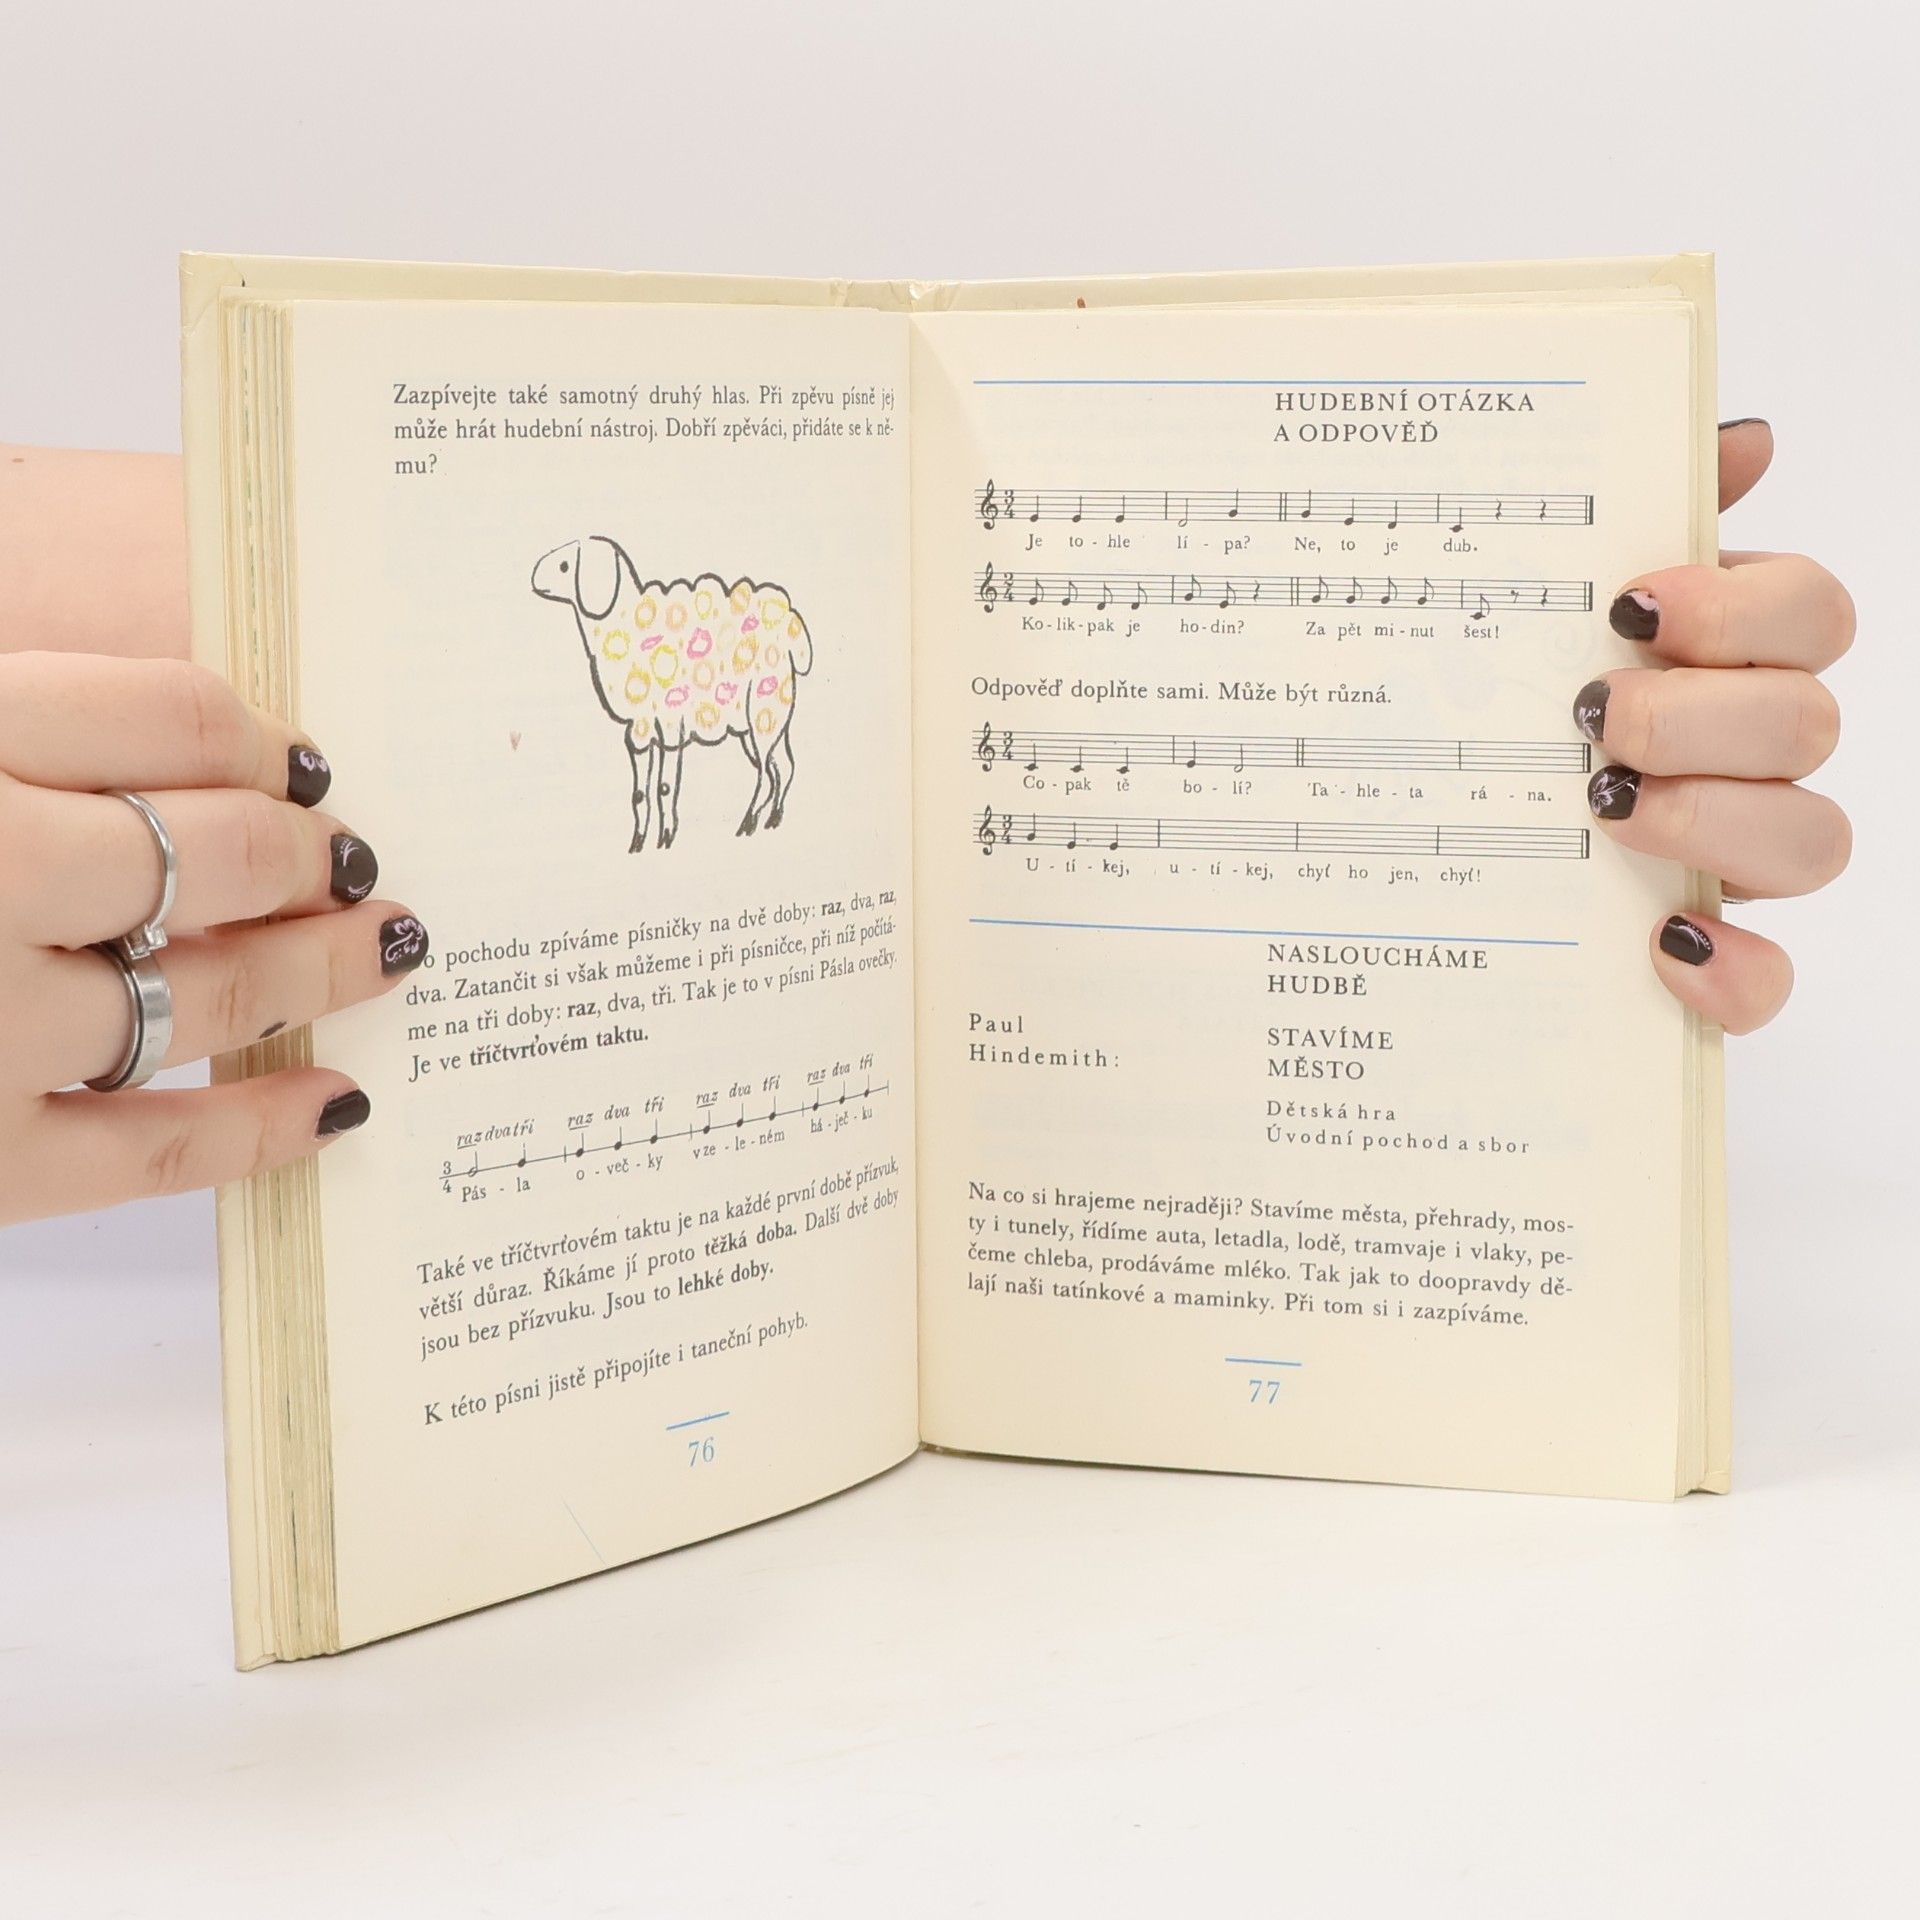 Zazpívejte také samotný druhý hlas. Při zpěvu písně jej
může hrát hudební nástroj. Dobří zpěváci, přidáte se k ně-
mu?
pochodu zpíváme písničky na dvě doby: raz, dva, raz,
dva. Zatančit si však můžeme i při písničce, při níž počítá-
me na tři doby: raz, dva, tři. Tak je to v písni Pásla ovečky.
Je ve tříčtvrťovém taktu.
raz dva tři raz dva tři raz dva tři raz dva tři
3
4
Pás - la o - več - ky v ze - le - ném há - ječ - ku
Také ve tříčtvrťovém taktu je na každé první době přízvuk,
větší důraz. Říkáme jí proto těžká doba. Další dvě doby
jsou bez přízvuku. Jsou to lehké doby.
K této písni jistě připojíte i taneční pohyb.
76
HUDEBNÍ OTÁZKA
A ODPOVĚĎ
3
4
Je to - hle lí - pa? Ne, to je dub.
2
4
Ko - lik - pak je ho - din? Za pět mi - nut šest!
Odpověď doplňte sami. Může být různá.
3
4
Co - pak tě bo - lí? Ta - hle - ta rá - na.
3
4
U - tí - kej, u - tí - kej, chyť ho jen, chyť!
NASLOUCHÁME
HUDBĚ
Paul
Hindemith:
STAVÍME
MĚSTO
Dětská hra
Úvodní pochod a sbor
Na co si hrajeme nejraději? Stavíme města, přehrady, mos-
ty i tunely, řídíme auta, letadla, lodě, tramvaje i vlaky, pe-
čeme chleba, prodáváme mléko. Tak jak to doopravdy dě-
lají naši tatínkové a maminky. Při tom si i zazpíváme.
77